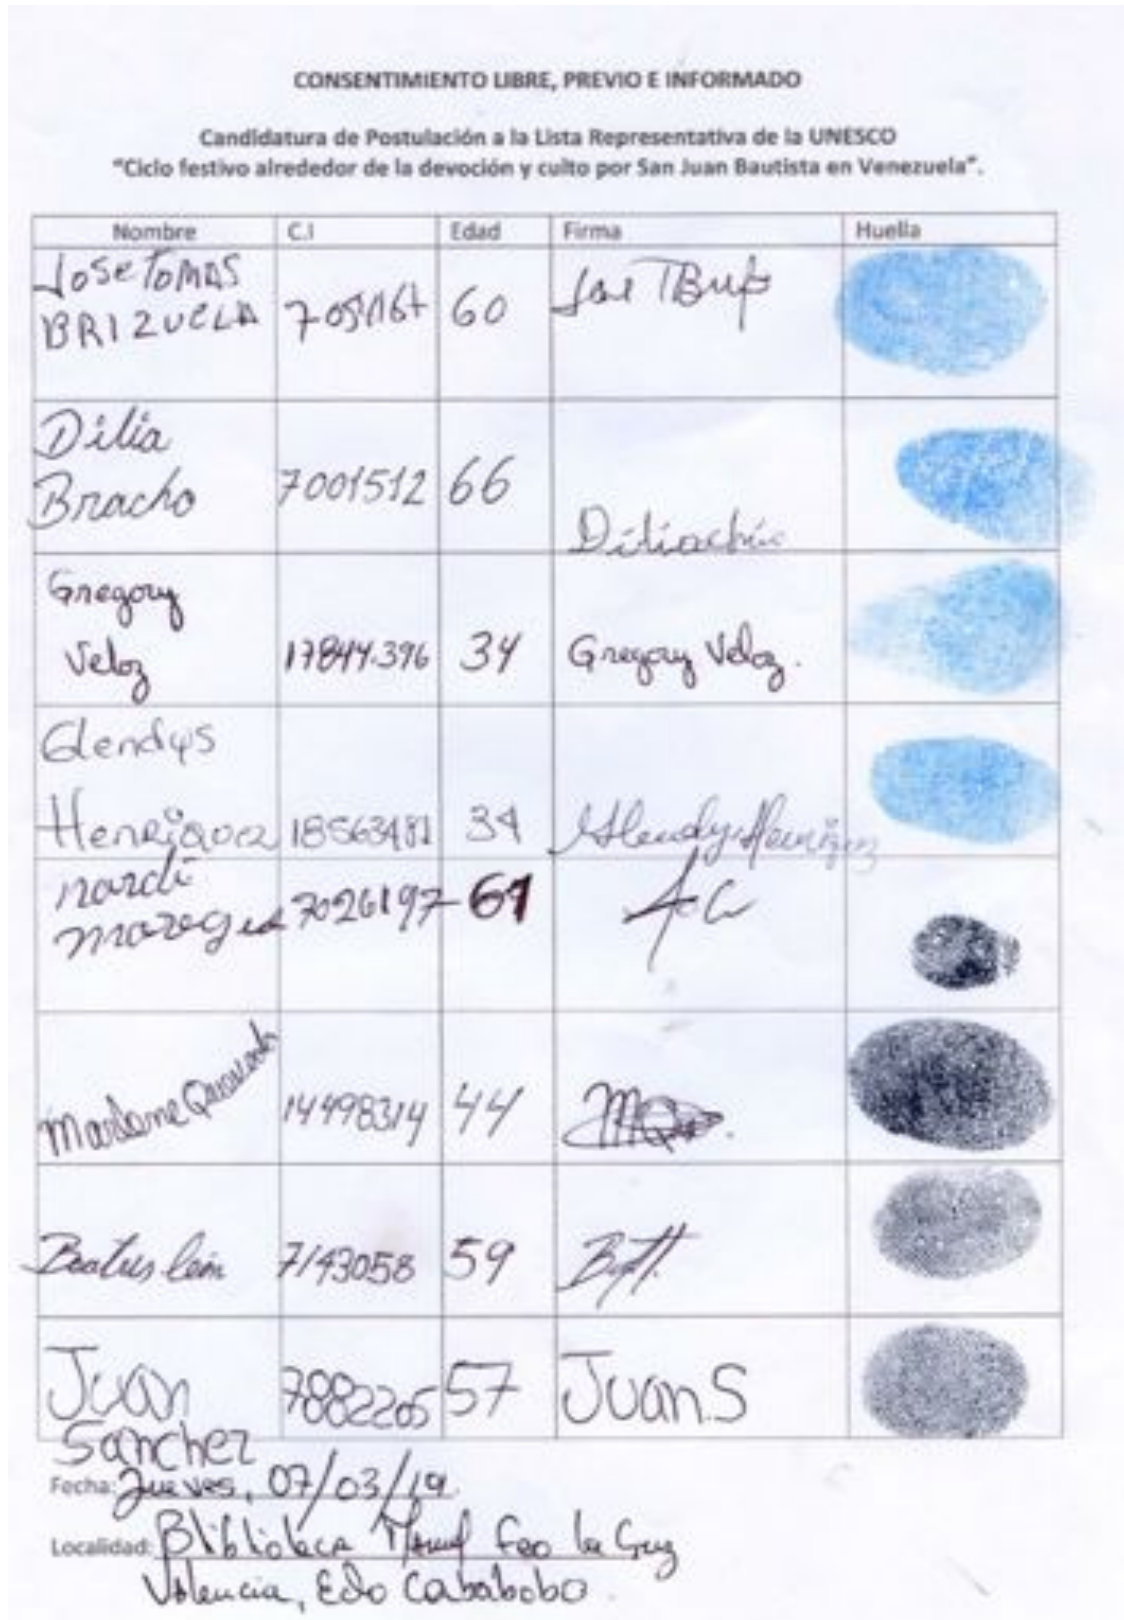 CONSENTIMIENTO LIBRE, PREVIO E INFORMADO
Candidatura de Postulación a la Lista Representativa de la UNESCO
"Ciclo festivo alrededor de la devoción y culto por San Juan Bautista en Venezuela".
Nombre C.I Edad Firma Huella
Jose TOMAS
BRIZUELA 60
Dilia
Bracho 7001512 66
Gregory
Veloz 17844.396 34 Gregory Veloz.
Glendys
Henriquez 18563481 34
7026197 61
Marlene 14498314 44
7143058 59
Juan
Sanchez 7882205 57 Juan.S
Fecha: Jueves, 07/03/19
Localidad: Biblioteca Feo la Cruz
Valencia, Edo Cababobo.